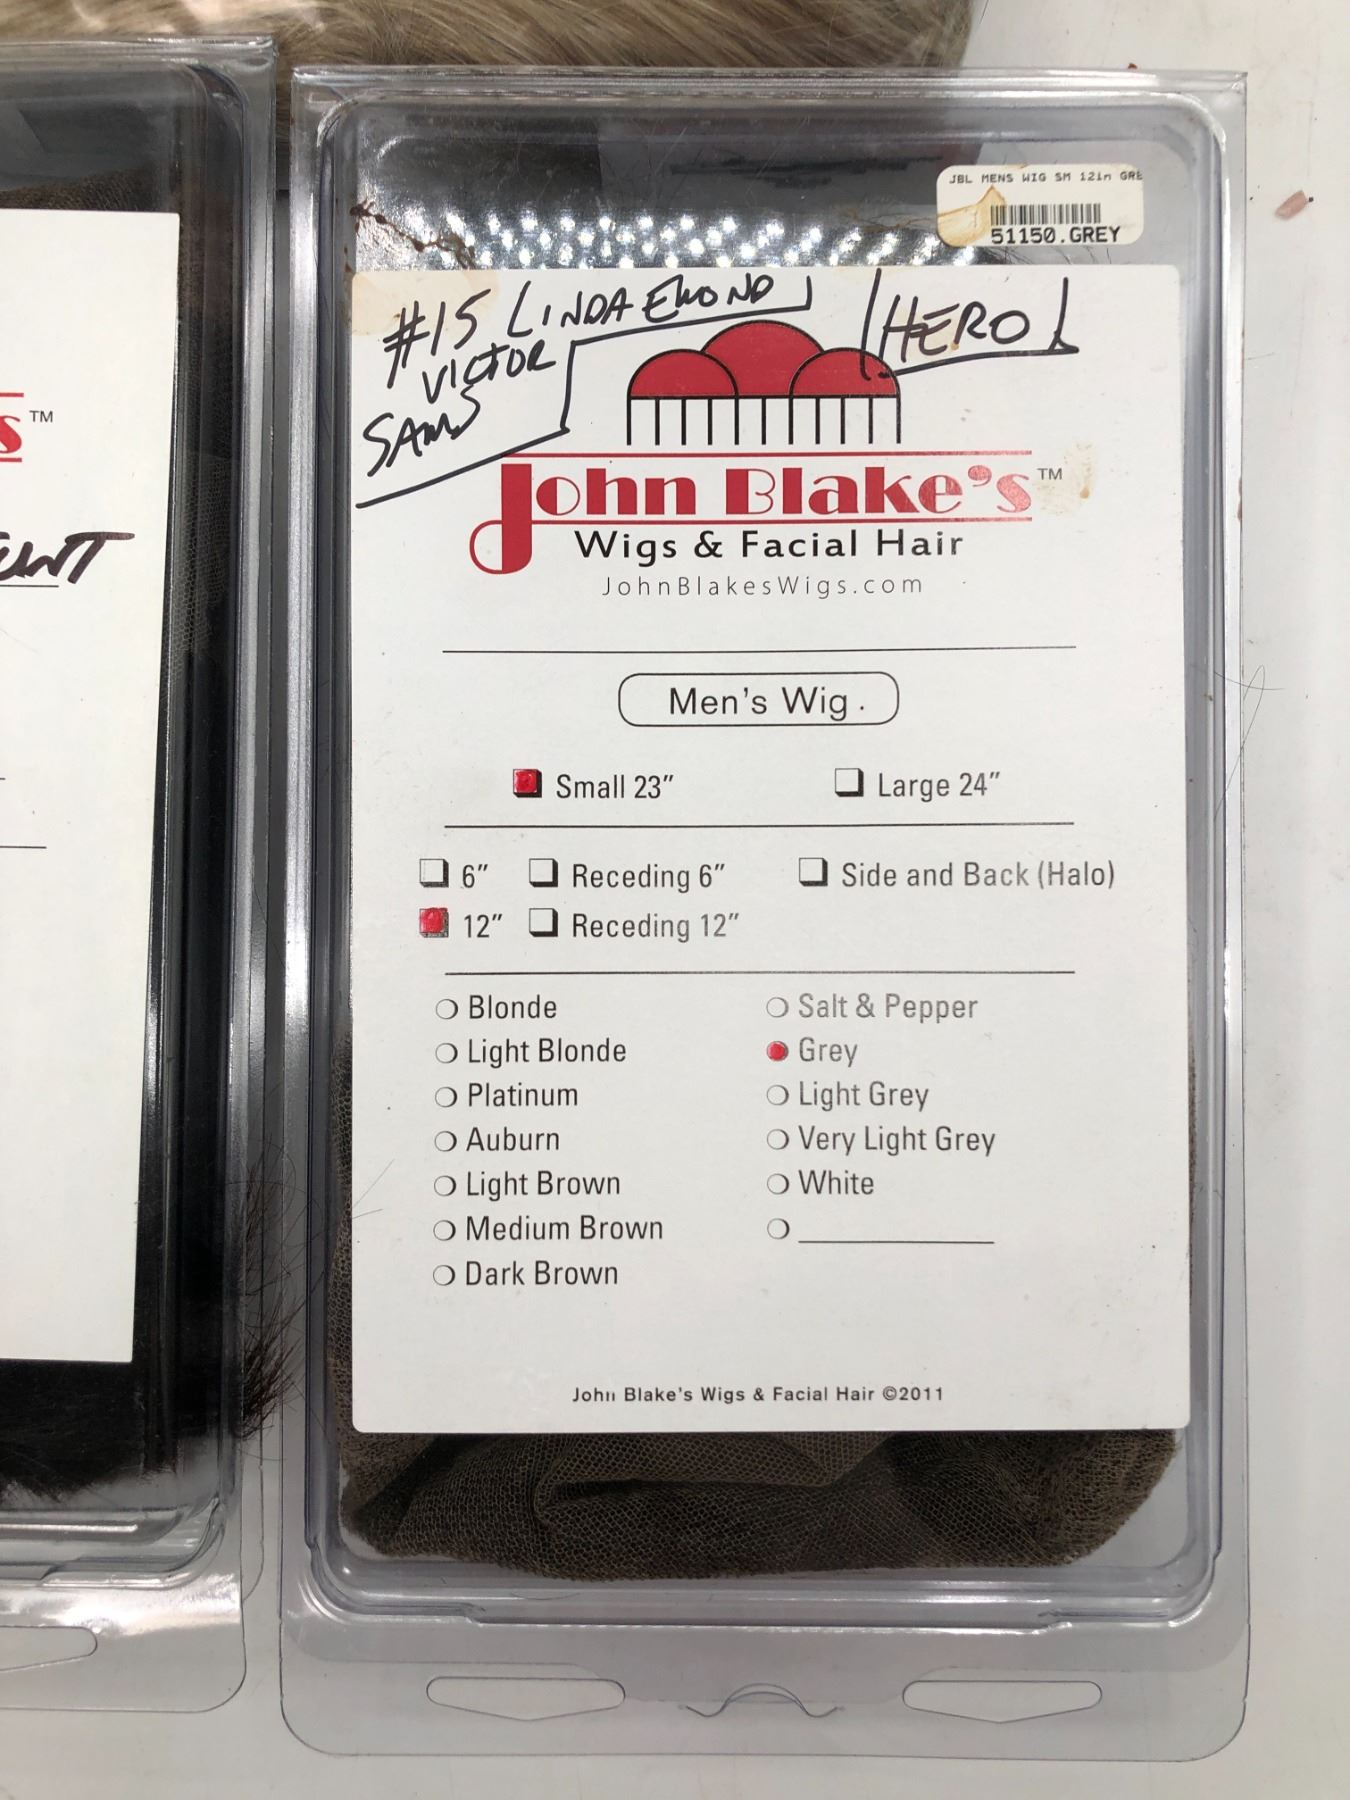 JBL MENS WIG SM 12in GRE
51150.GREY
#15 LINDA EMOND
VICTOR
SAMS
HERO
John Blake's™
Wigs & Facial Hair
JohnBlakesWigs.com
Men's Wig.
Small 23" Large 24"
6" Receding 6" Side and Back (Halo)
12" Receding 12"
Blonde Salt & Pepper
Light Blonde Grey
Platinum Light Grey
Auburn Very Light Grey
Light Brown White
Medium Brown
Dark Brown
John Blake's Wigs & Facial Hair ©2011
s™